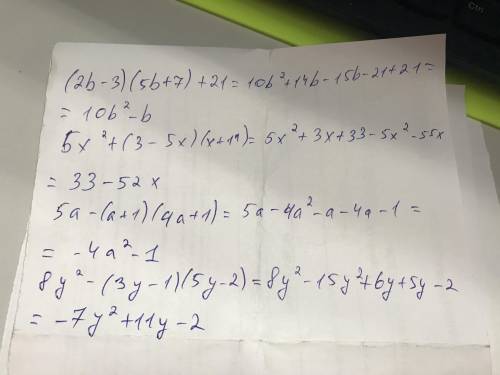 (2b-3)(5b+7)+21=10b²+14b-15b-21+21=
=10b²-b
5x²+(3-5x)(x+11)=5x²+3x+33-5x²-55x
=33-52x
5a-(a+1)(4a+1)=5a-4a²-a-4a-1=
=-4a²-1
8y²-(3y-1)(5y-2)=8y²-15y²+6y+5y-2
=-7y²+11y-2
Ctrl